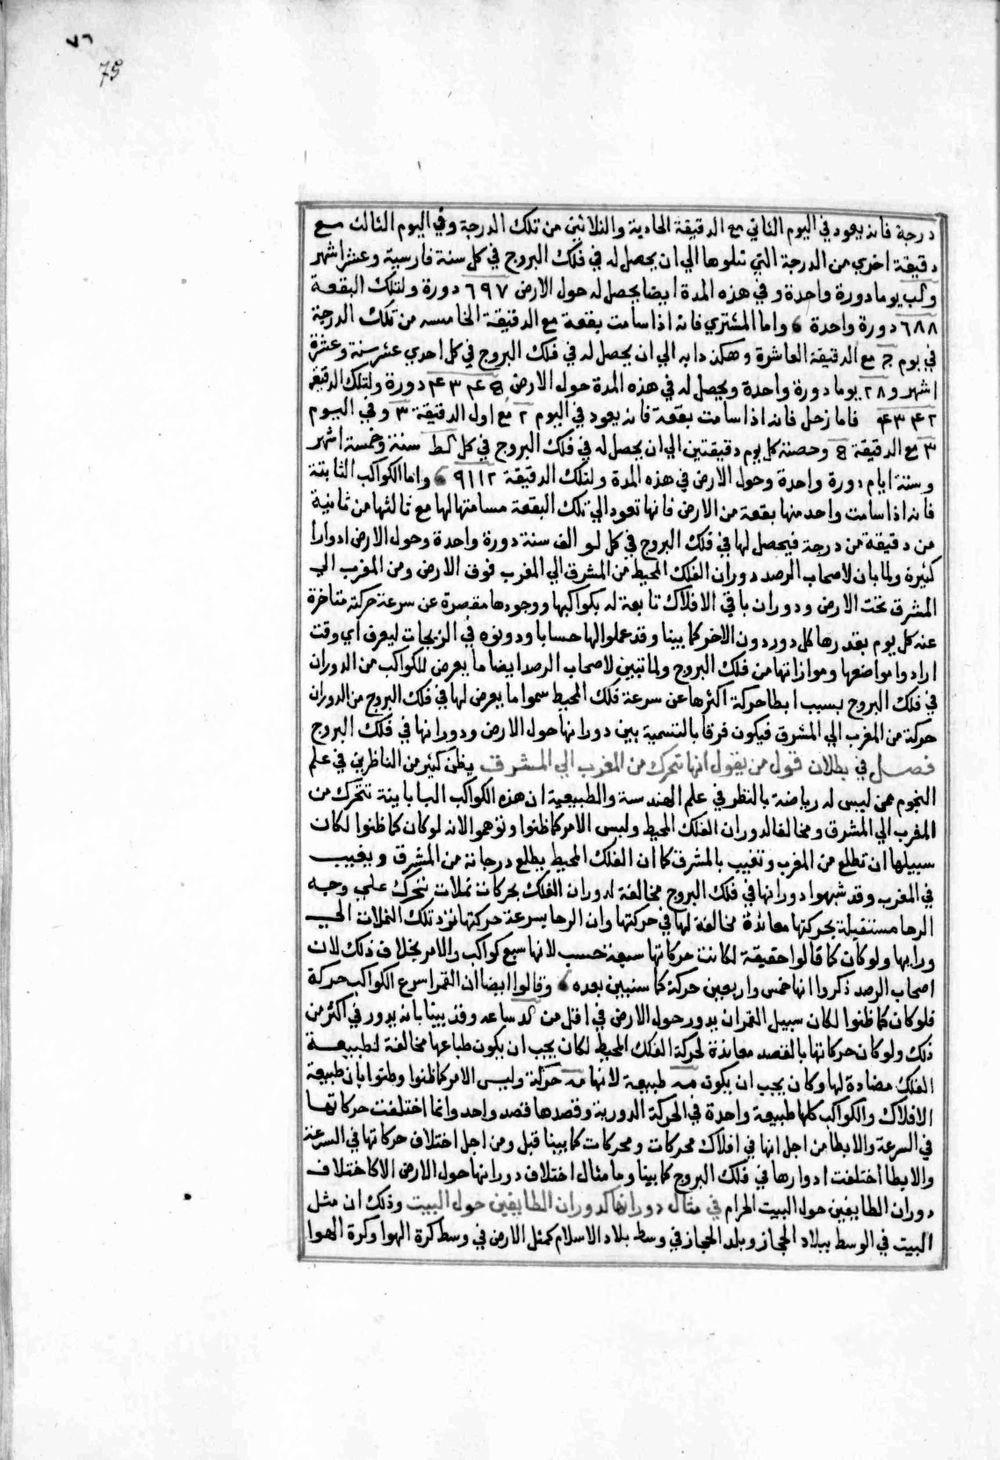 ٧٦
75
درجة فانه يعود في اليوم الثاني مع الدقيقة الحادية والثلاثين من تلك الدرجة وفي اليوم الثالث مع
دقيقة اخري من الدرجة التي تتلوها الي ان يحصل له في فلك البروج في كل سنة فارسية وعشر اشهر
وكب يوما دورة واحدة وفي هذه المدة ايضا يحصل له حول الارض ٦٩٧ دورة ولتلك البقعة
٦٨٨ دورة واحدة واما المشتري فانه اذا سامت بقعة مع الدقيقة الخامسه من تلك الدرجة
في يوم مع الدقيقة العاشرة وهكذا دابه الي ان يحصل له في فلك البروج في كل احدي عشر سنة وعشرة
اشهر و٢٨ يوما دورة واحدة ويحصل له في هذه المدة حول الارض دورة ولتلك الدقيقة
فاما زحل فانه اذا سامت بقعة فانه يعود في اليوم ٢ مع اول الدقيقة ٣ وفي اليوم
٣ مع الدقيقة وحصته كل يوم دقيقتين الي ان يحصل له في فلك البروج في كل كط سنة وخمسة اشهر
وستة ايام دورة واحدة وحول الارض في هذه المدة ولتلك الدقيقة ٩١١٢ واما الكواكب الثابتة
فانه اذا سامت واحد منها بقعة من الارض فانها تعود الي تلك البقعة مسامتها لها مع ثالثها من ثانية
من دقيقة من درجة فيحصل لها في فلك البروج في كل لو الف سنة دورة واحدة وحول الارض ادوارا
كثيرة ولما بان لاصحاب الرصد دوران الفلك المحيط من المشرق الي المغرب فوق الارض ومن المغرب الي
المشرق تحت الارض ودوران باقي الافلاك تابعة له بكواكبها ووجودها مقصرة عن سرعة حركته متاخرة
عنه كل يوم بقدر ما كل دور دون الاخر كما بينا وقد عملوا لها حسابا ودونوه في الزيجات ليعرف اي وقت
ارادوا مواضعها وموازاتها من فلك البروج ولما تبين لاصحاب الرصد ايضا ما يعرض للكواكب من الدوران
في فلك البروج بسبب ابطا حركة اكثرها عن سرعة فلك المحيط سموا ما يعرض لها في فلك البروج من الدوران
حركة من المغرب الي المشرق فيكون فرقا بالتسمية بين دورانها حول الارض ودورانها في فلك البروج
فصل في بطلان قول من يقول انها تتحرك من المغرب الي المشرق يظن كثير من الناظرين في علم
النجوم ممن ليس له رياضة بالنظر في علم الهندسة والطبيعية ان هذه الكواكب السيارة تتحرك من
المغرب الي المشرق ومخالفا لدوران الفلك المحيط وليس الامر كما ظنوا وتوهموا لانه لو كان كما ظنوا لكان
سبيلها ان تطلع من المغرب وتغيب بالمشرق كما ان الفلك المحيط يطلع درجاته من المشرق ويغيب
في المغرب وقد شبهوا دورانها في فلك البروج مخالفة لدوران الفلك بحركات نملات تتحرك علي وجه
الرحا مستقبلة بحركتها معاندة مخالفة لها في حركتها وان الرحا بسرعة حركتها ترد تلك النملات الي
ورايها ولو كان كما قالوا حقيقة لكانت حركاتها سبعة حسب لانها سبع كواكب والامر بخلاف ذلك لان
اصحاب الرصد ذكروا انها خمس واربعين حركة كما سنبين بعده وقالوا ايضا ان القمر اسرع الكواكب حركة
فلو كان كما ظنوا لكان سبيل القمر ان يدور حول الارض في اقل من كد ساعه وقد بينا بانه يدور في اكثر من
ذلك ولو كان حركاتها بالقصد معاندة لحركة الفلك المحيط لكان يجب ان يكون طباعها مخالفة لطبيعة
الفلك مضادة لها وكان يجب ان يكون مه طبيعة لانها مه حركة وليس الامر كما ظنوا وظنوا بان طبيعة
الافلاك والكواكب كلها طبيعة واحدة في الحركة الدورية وقصدها قصد واحد وانما اختلفت حركاتها
في السرعة والابطا من اجل انها في افلاك محركات ومحركات كما بينا قبل ومن اجل اختلاف حركاتها في السرعة
والابطا اختلفت ادوارها في فلك البروج كما بينا وما مثال اختلاف دورانها حول الارض الا كاختلاف
دوران الطايفين حول البيت الحرام في مثال دورانها كدوران الطايفين حول البيت وذلك ان مثل
البيت في الوسط ببلاد الحجاز وبلد الحجاز في وسط بلاد الاسلام كمثل الارض في وسط كرة الهوا وكرة الهوا